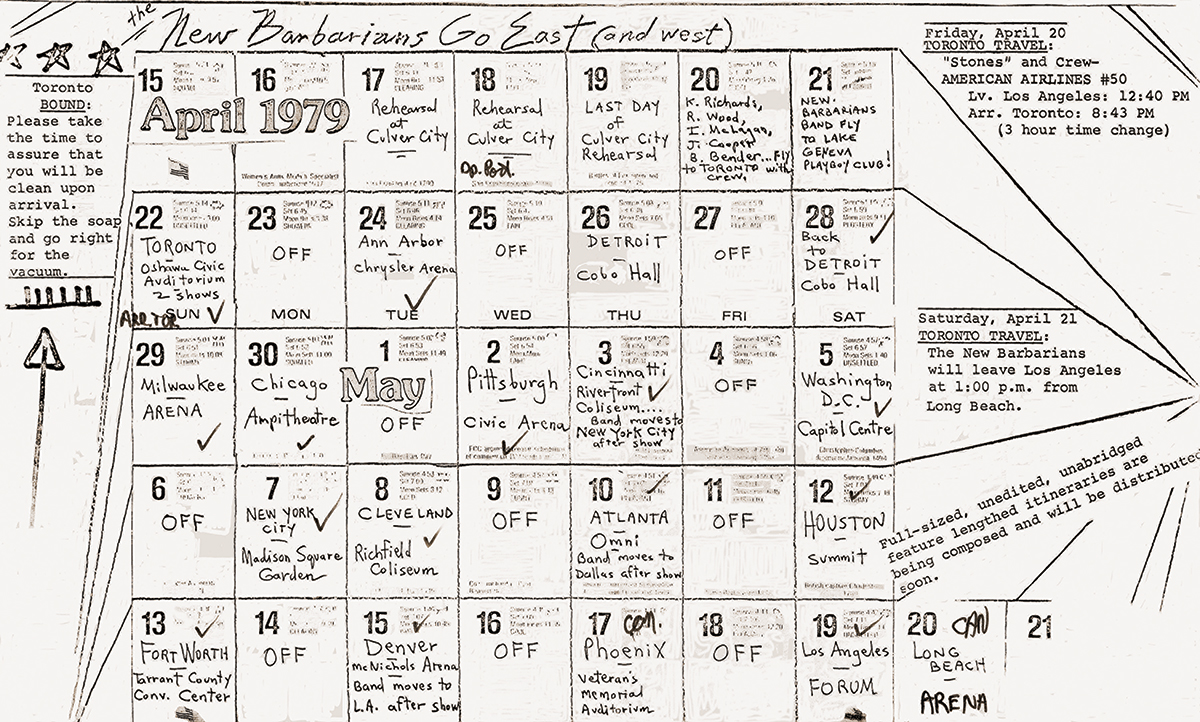 the New Barbarians Go East (and west)
Toronto
BOUND:
Please take
the time to
assure that
you will be
clean upon
arrival.
Skip the soap
and go right
for the
vacuum.
April 1979
15
16
17
Rehearsal
at
Culver City
18
Rehearsal
at
Culver City
19
LAST DAY
of
Culver City
Rehearsal
20
K. Richards,
R. Wood,
I. McLagan,
J. Cooper
B. Bender...Fly
to TORONTO with
crew.
21
NEW
BARBARIANS
BAND FLY
TO LAKE
GENEVA
PLAYBOY CLUB!
Friday, April 20
TORONTO TRAVEL:
"Stones" and Crew-
AMERICAN AIRLINES #50
Lv. Los Angeles: 12:40 PM
Arr. Toronto: 8:43 PM
(3 hour time change)
22
TORONTO
Oshawa Civic
Auditorium
2 shows
SUN
23
OFF
MON
24
Ann Arbor
Chrysler Arena
TUE
25
OFF
WED
26
DETROIT
Cobo Hall
THU
27
OFF
FRI
28
Back
to
DETROIT
Cobo Hall
SAT
Saturday, April 21
TORONTO TRAVEL:
The New Barbarians
will leave Los Angeles
at 1:00 p.m. from
Long Beach.
29
Milwaukee
ARENA
30
Chicago
Ampitheatre
May
1
OFF
2
Pittsburgh
Civic Arena
3
Cincinnatti
Riverfront
Coliseum....
Band moves to
New York City
after show
4
OFF
5
Washington
D.C.
Capitol Centre
6
OFF
7
NEW YORK
City
Madison Square
Garden
8
CLEVELAND
Richfield
Coliseum
9
OFF
10
ATLANTA
Omni
Band moves to
Dallas after show
11
OFF
12
HOUSTON
Summit
Full-sized, unedited, unabridged
feature lengthed itineraries are
being composed and will be distributed
soon.
13
FORT WORTH
Tarrant County
Conv. Center
14
OFF
15
Denver
McNichols Arena
Band moves to
L.A. after show
16
OFF
17 can.
Phoenix
Veteran's
Memorial
Auditorium
18
OFF
19
Los Angeles
FORUM
20 CAN
LONG
BEACH
ARENA
21